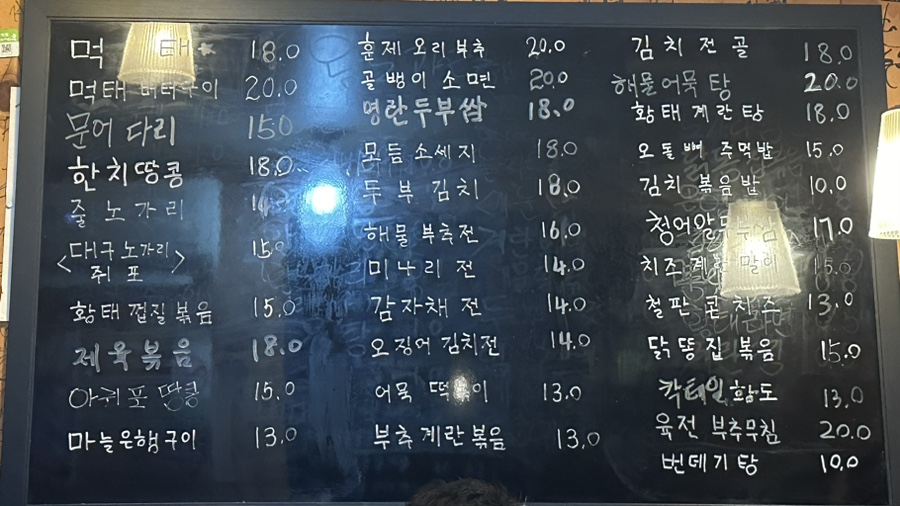 먹 태 18.0
먹태 버터구이 20.0
문어 다리 150
한치땅콩 18.0
줄 노 가 리
<대구 노가리 쥐 포> 15.0
황태껍질볶음 15.0
제육볶음 18.0
아귀포 땅콩 15.0
마늘은행구이 13.0
훈제 오리 부추 20.0
골뱅이 소면 20.0
명란두부쌈 18.0
모듬소세지 18.0
두부김치 18.0
해물 부추전 16.0
미나리 전 14.0
감자채 전 14.0
오징어 김치전 14.0
어묵 떡볶이 13.0
부추계란볶음 13.0
김치전골 18.0
해물어묵탕 20.0
황태 계란탕 18.0
오돌뼈 주먹밥 15.0
김치볶음밥 10.0
청어알두부쌈 17.0
치즈계란말이 15.0
철판콘치즈 13.0
닭똥집볶음 15.0
칵테일황도 13.0
육전 부추무침 20.0
번데기탕 10.0